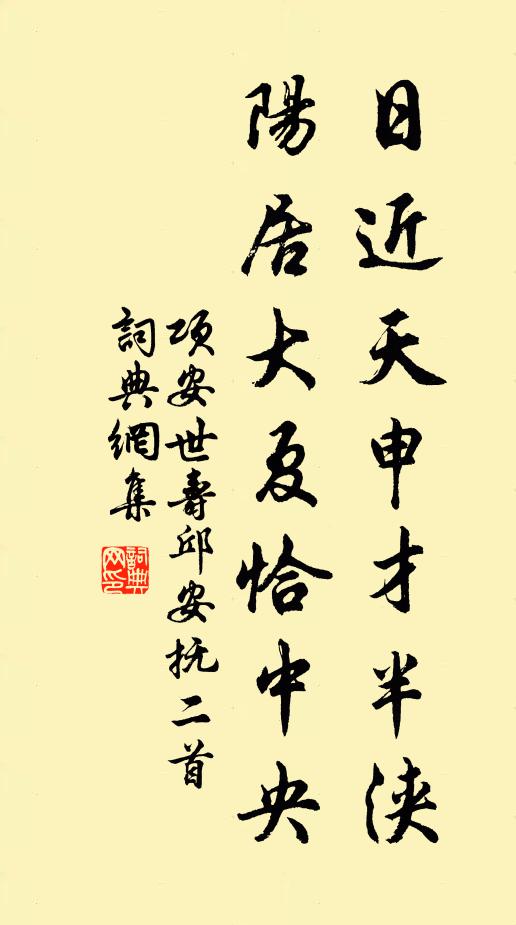 日近天申才半浹
陽居大夏恰中央
項安世壽邱安抚二首
詞典網集
詞典网印